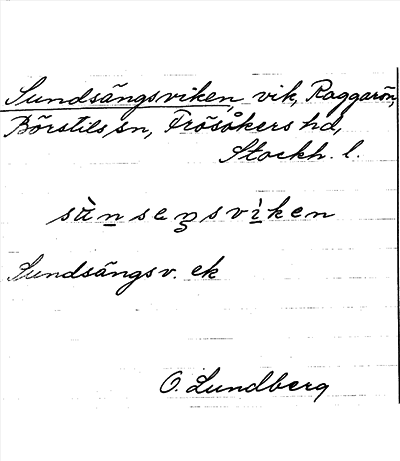 Sundsängsviken, vik, Raggarön,
Börstils sn, Frösåkers hd,
Stockh. l.
sùn̲seŋsvì̲ken
Sundsängsv. ek
O. Lundberg